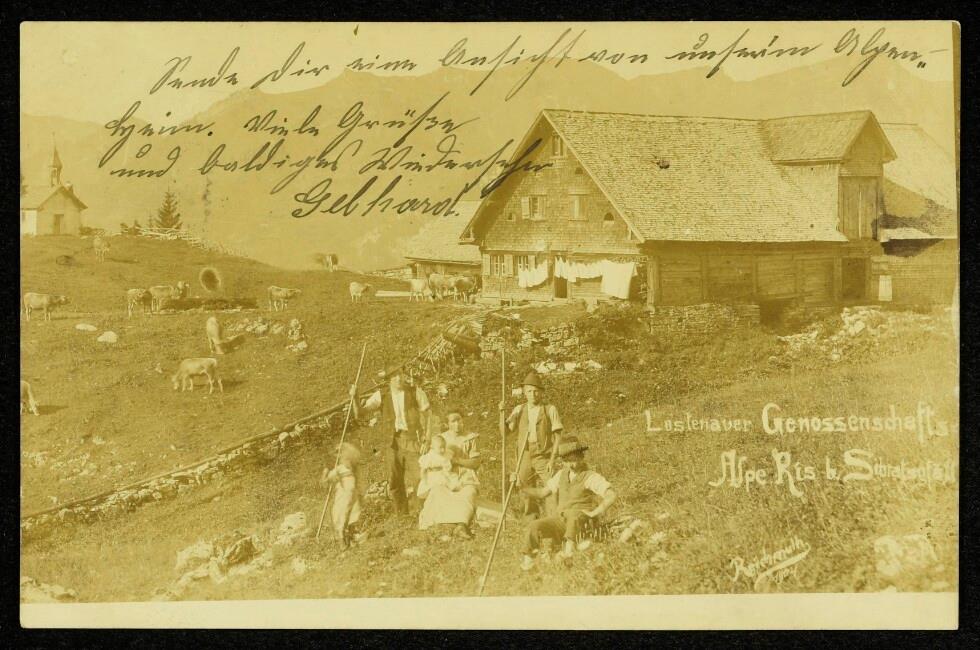 Sende Dir eine Ansicht von unser'm Alpen-
heim. Viele Grüße
und baldiges Wiedersehn
Gebhard.
Lustenauer Genossenschafts
Alpe Ris b.
1904